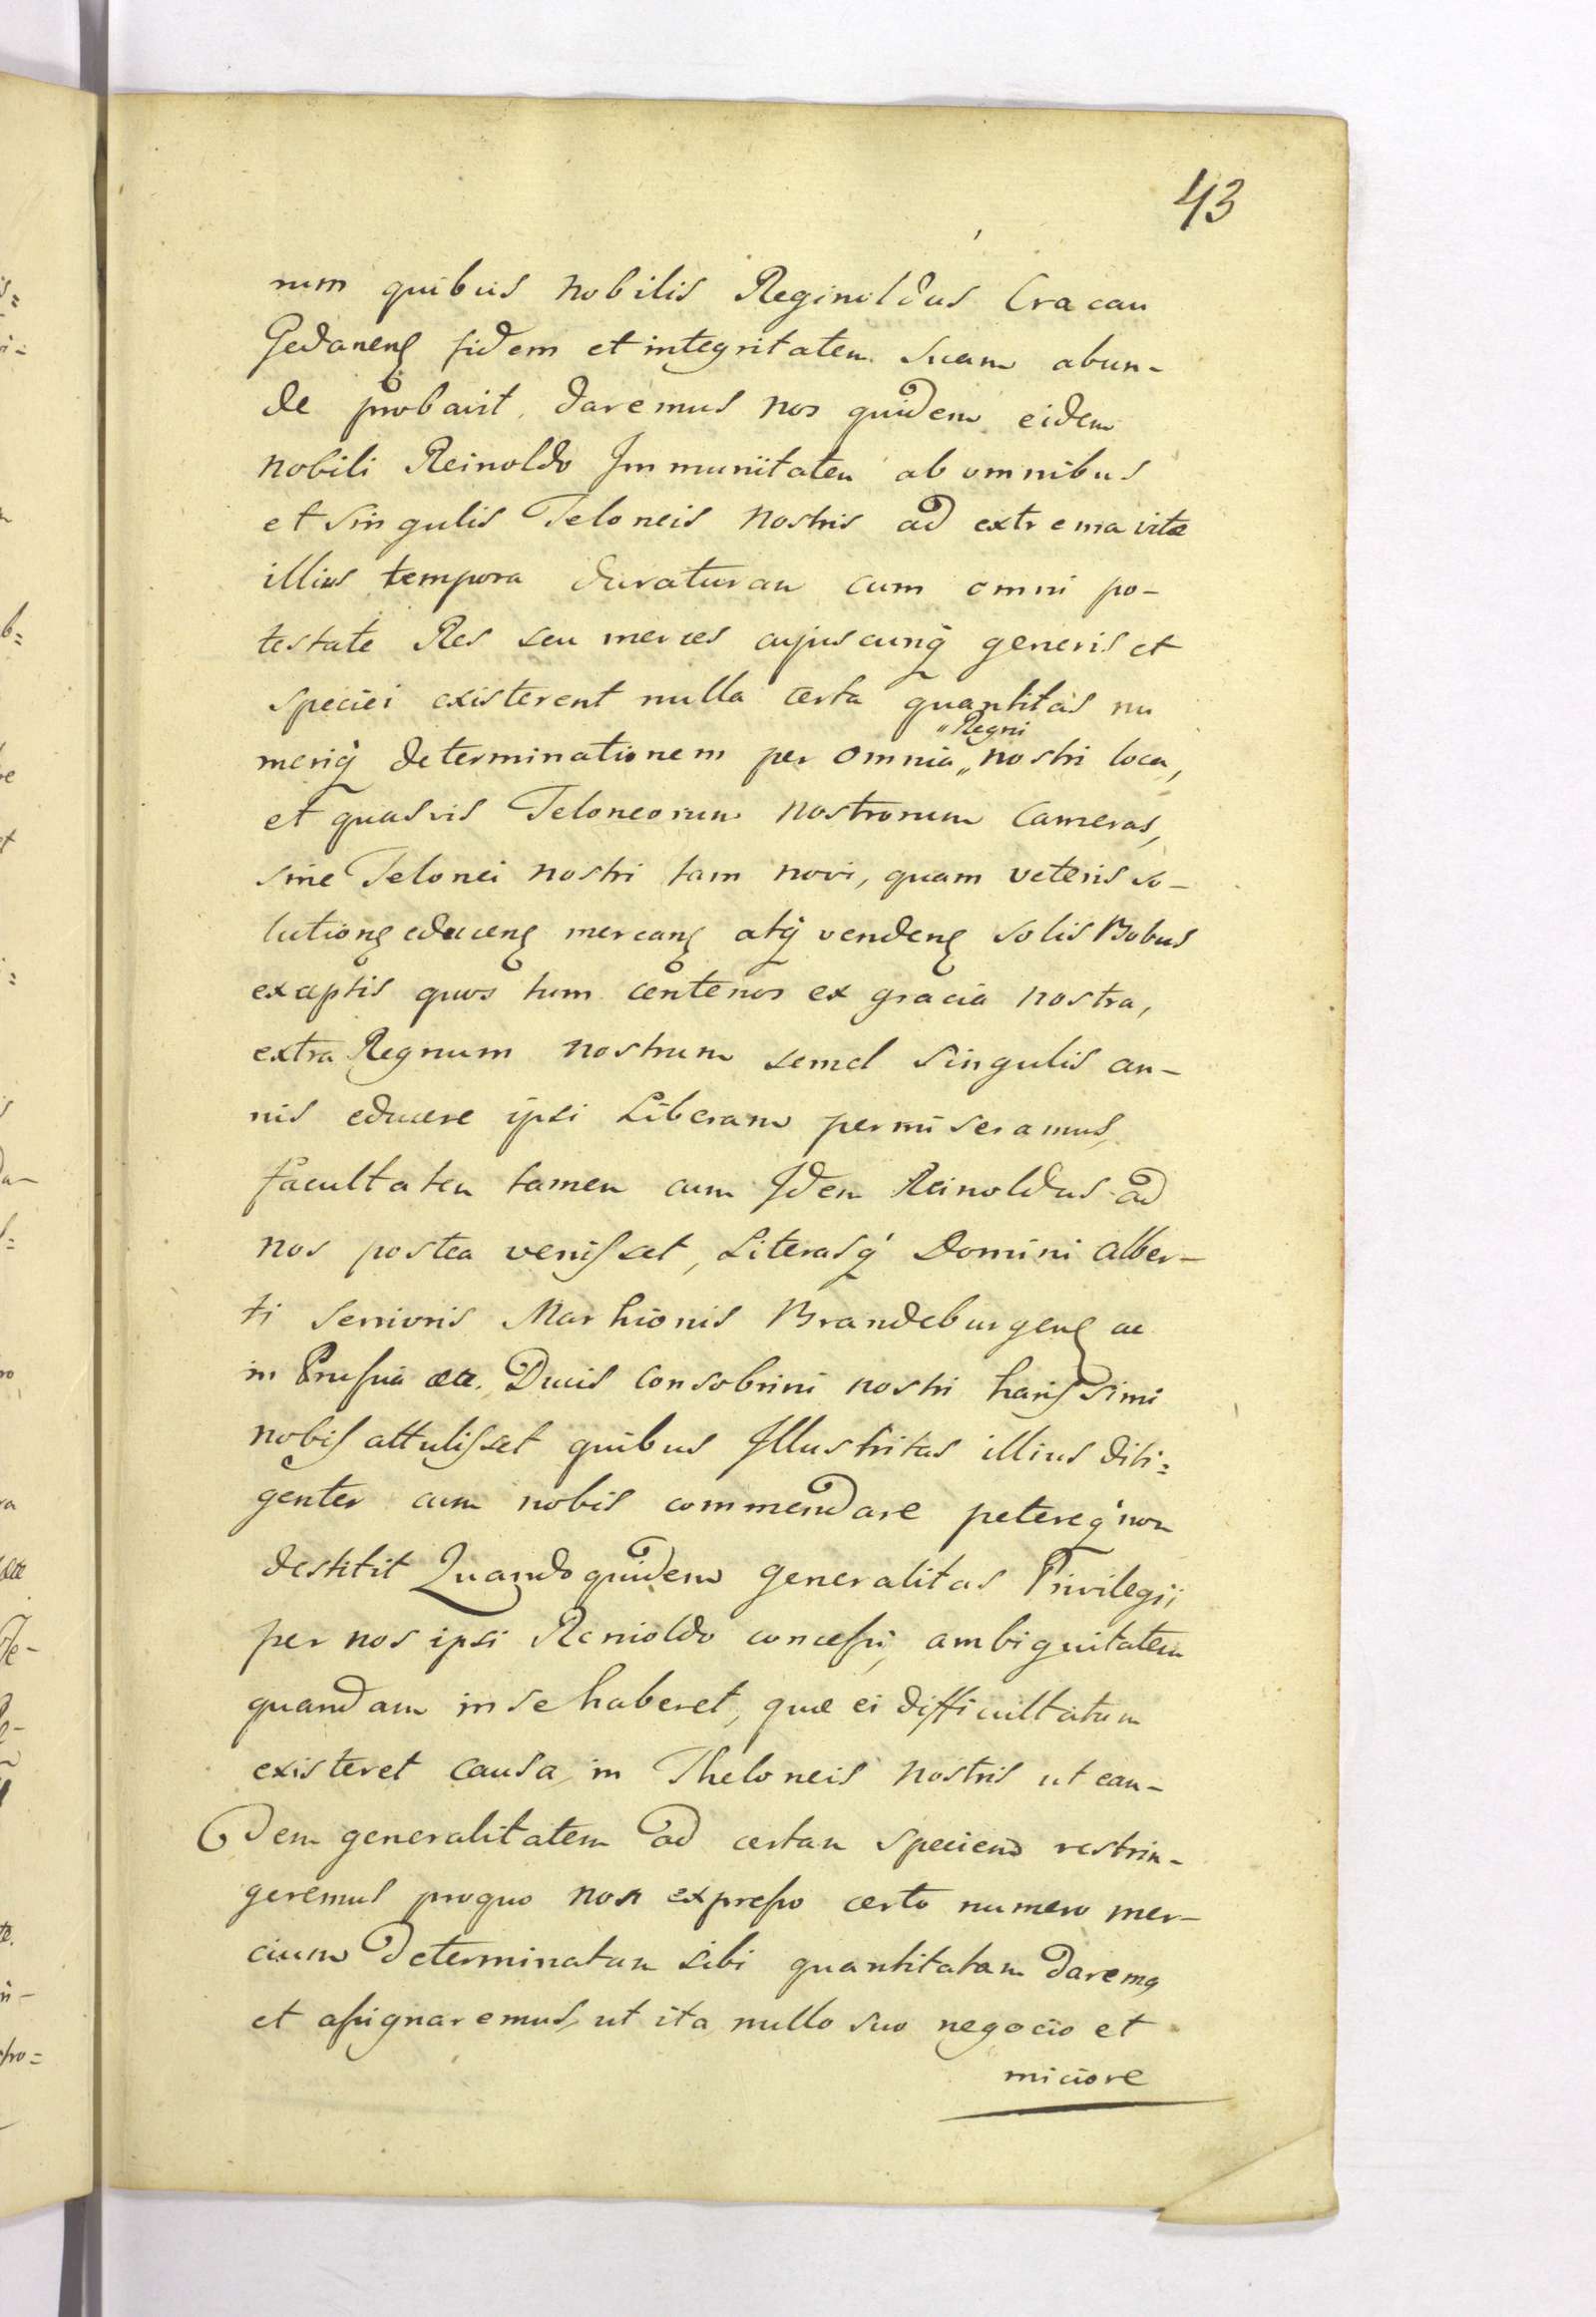 43
rum quibus nobilis Reginoldus Cracau
Gedanenſ fidem et integritatem suam abun-
de probavit, daremus nos quidem eidem
nobili Reinoldo Immunitatem ab omnibus
et singulis Teloneis nostris ad extrema vitæ
illius tempora duraturam cum omni po-
testate Res seu merces cujuscunq generis et
speciei existerent nulla certa quantitas nu
meriq determinationem per omnia „ nostri loca,
„ Regni
et quasvis Teloneorum nostrorum Cameras,
sine Telonei nostri tam novi, quam veteris so-
lutionę educenę mercanę atq vendenę solis Bobus
exceptis quos tum centenos ex gracia nostra,
extra Regnum nostrum semel singulis an-
nis educere ipsi Liberam permiseramus,
facultatem tamen cum Idem Reinoldus ad
nos postea veniſset, Literasq Domini Alber-
ti Senioris Marhionis Brandeburgenę ac
in Pruſsia etc. Ducis consobrini nostri hariſsimi
nobiſ attuliſset quibus Illustritas illius dili=
genter eum nobis commendare petereq non
destitit Quandoquidem generalitas Privilegii
per nos ipsi Renioldo conceſsi, ambiguitatem
quandam in se haberet, quæ ei difficultatum
existeret causa, in Theloneis nostris ut ean-
dem generalitatem ad certam speciem restrin-
geremus proquo non expreſso certo numero mer-
cium determinatam sibi quantitatam daremq
et aſsignaremus, ut ita nullo suo negocio et
miciore